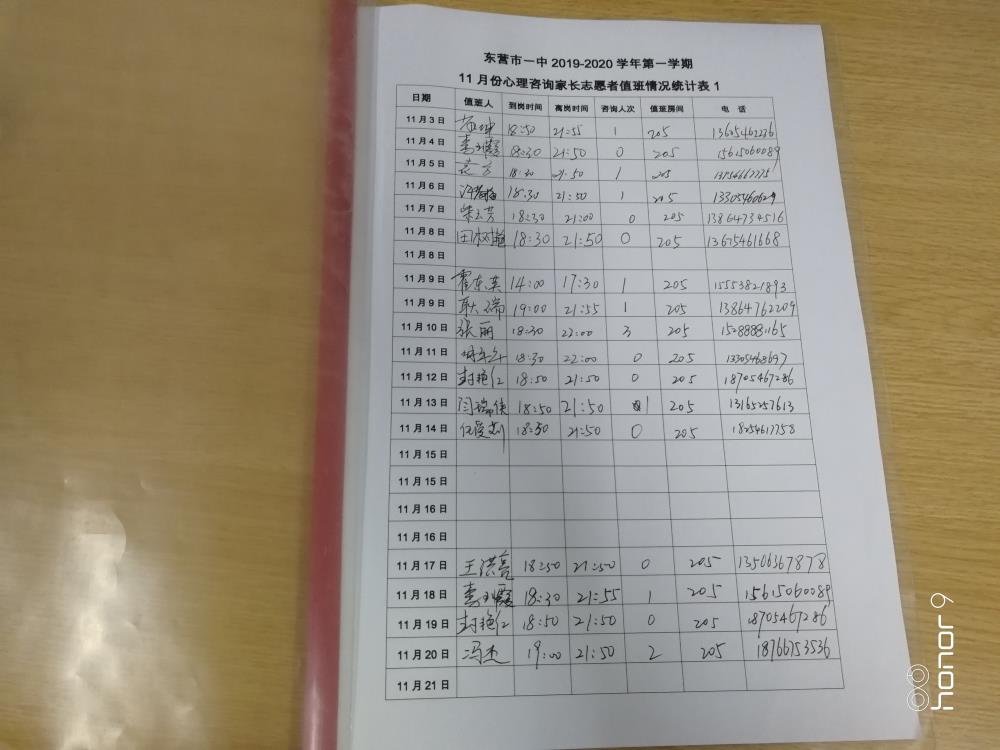 东营市一中 2019-2020 学年第一学期
11 月份心理咨询家长志愿者值班情况统计表 1
日期 值班人 到岗时间 离岗时间 咨询人次 值班房间 电 话
11 月 3 日 18:50 21:55 1 205
11 月 4 日 18:30 21:50 0 205 15615060089
11 月 5 日 18:30 21:50 1 205
11 月 6 日 18:30 21:50 1 205
11 月 7 日 18:30 21:00 0 205 13864734516
11 月 8 日 18:30 21:50 0 205
11 月 8 日
11 月 9 日 霍东英 14:00 17:30 1 205 15553821893
11 月 9 日 19:00 21:55 1 205 13864762209
11 月 10 日 张丽 18:30 22:00 3 205
11 月 11 日 18:30 22:00 0 205
11 月 12 日 封艳红 18:50 21:50 0 205 18705467286
11 月 13 日 18:50 21:50 1 205 13165257613
11 月 14 日 21:50 0 205 18254617758
11 月 15 日
11 月 15 日
11 月 16 日
11 月 16 日
11 月 17 日 王洪亮 18:50 21:50 0 205
11 月 18 日 18:30 21:55 1 205 15615060089
11 月 19 日 封艳红 18:50 21:50 0 205 18705467286
11 月 20 日 冯杰 19:00 21:50 2 205 18766753536
11 月 21 日
honor 9